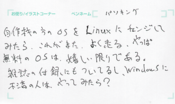 お便り/イラストコーナー
ペンネーム
パソキング
自作機のそのOSをLinuxにチェンジして
みたら、これがまた、よく走る。やっぱ
無料のOSは、嬉しい限りである。
雑誌の付録にもついてるし、Windowsに
不満の人は、やってみたら?